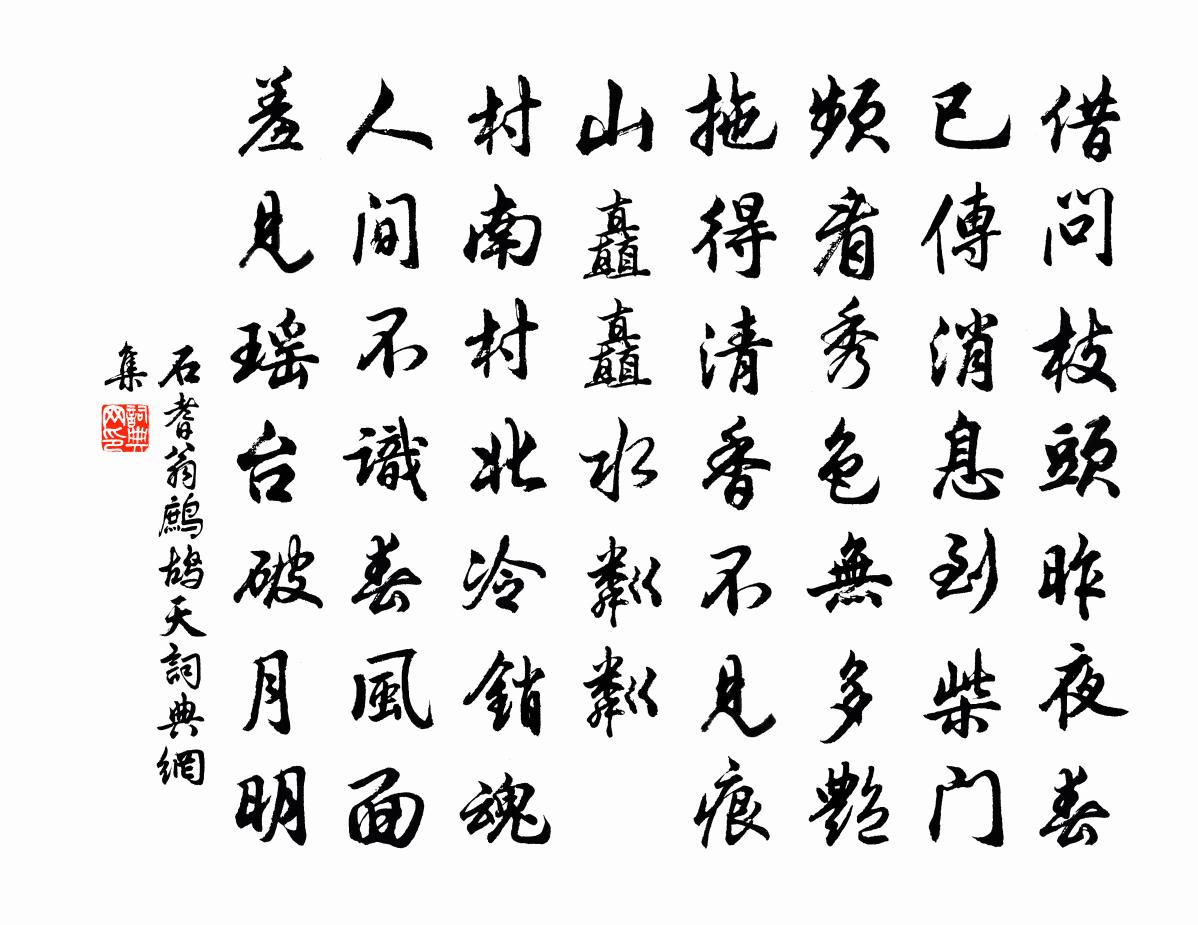 借問枝頭昨夜春
已傳消息到柴門
頻看秀色無多艷
拖得清香不見痕
山矗矗水粼粼
村南村北冷銷魂
人間不識春風面
羞見瑶台破月明
石耆翁鷓鴣天詞典網
集
詞典网印